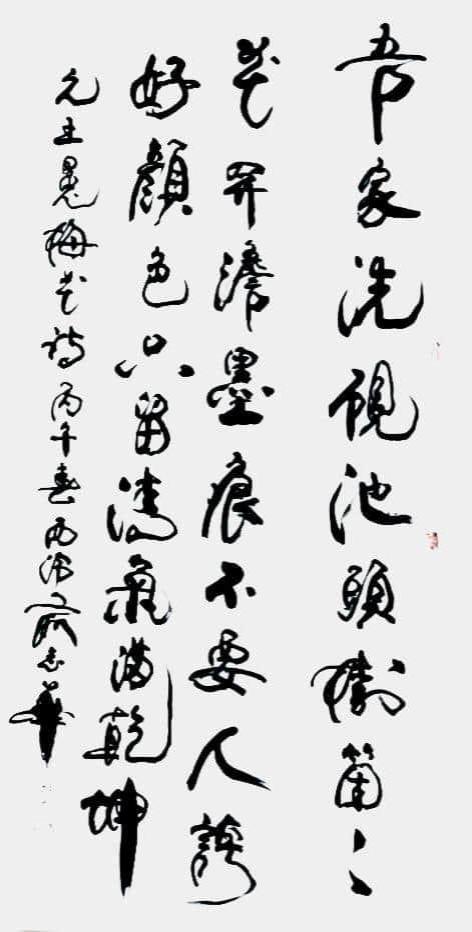 吾家洗硯池頭樹箇々
花開澹墨痕不要人誇
好顔色只留清氣滿乾坤
元王冕梅花詩丙午春志華